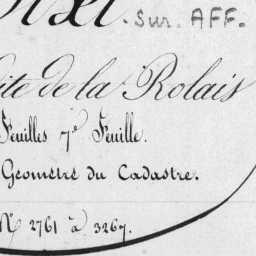 Sur. AFF.
ite de la Rolais
Feuilles 7e Feuille.
Géomètre du Cadastre.
No 2761 à 3267.